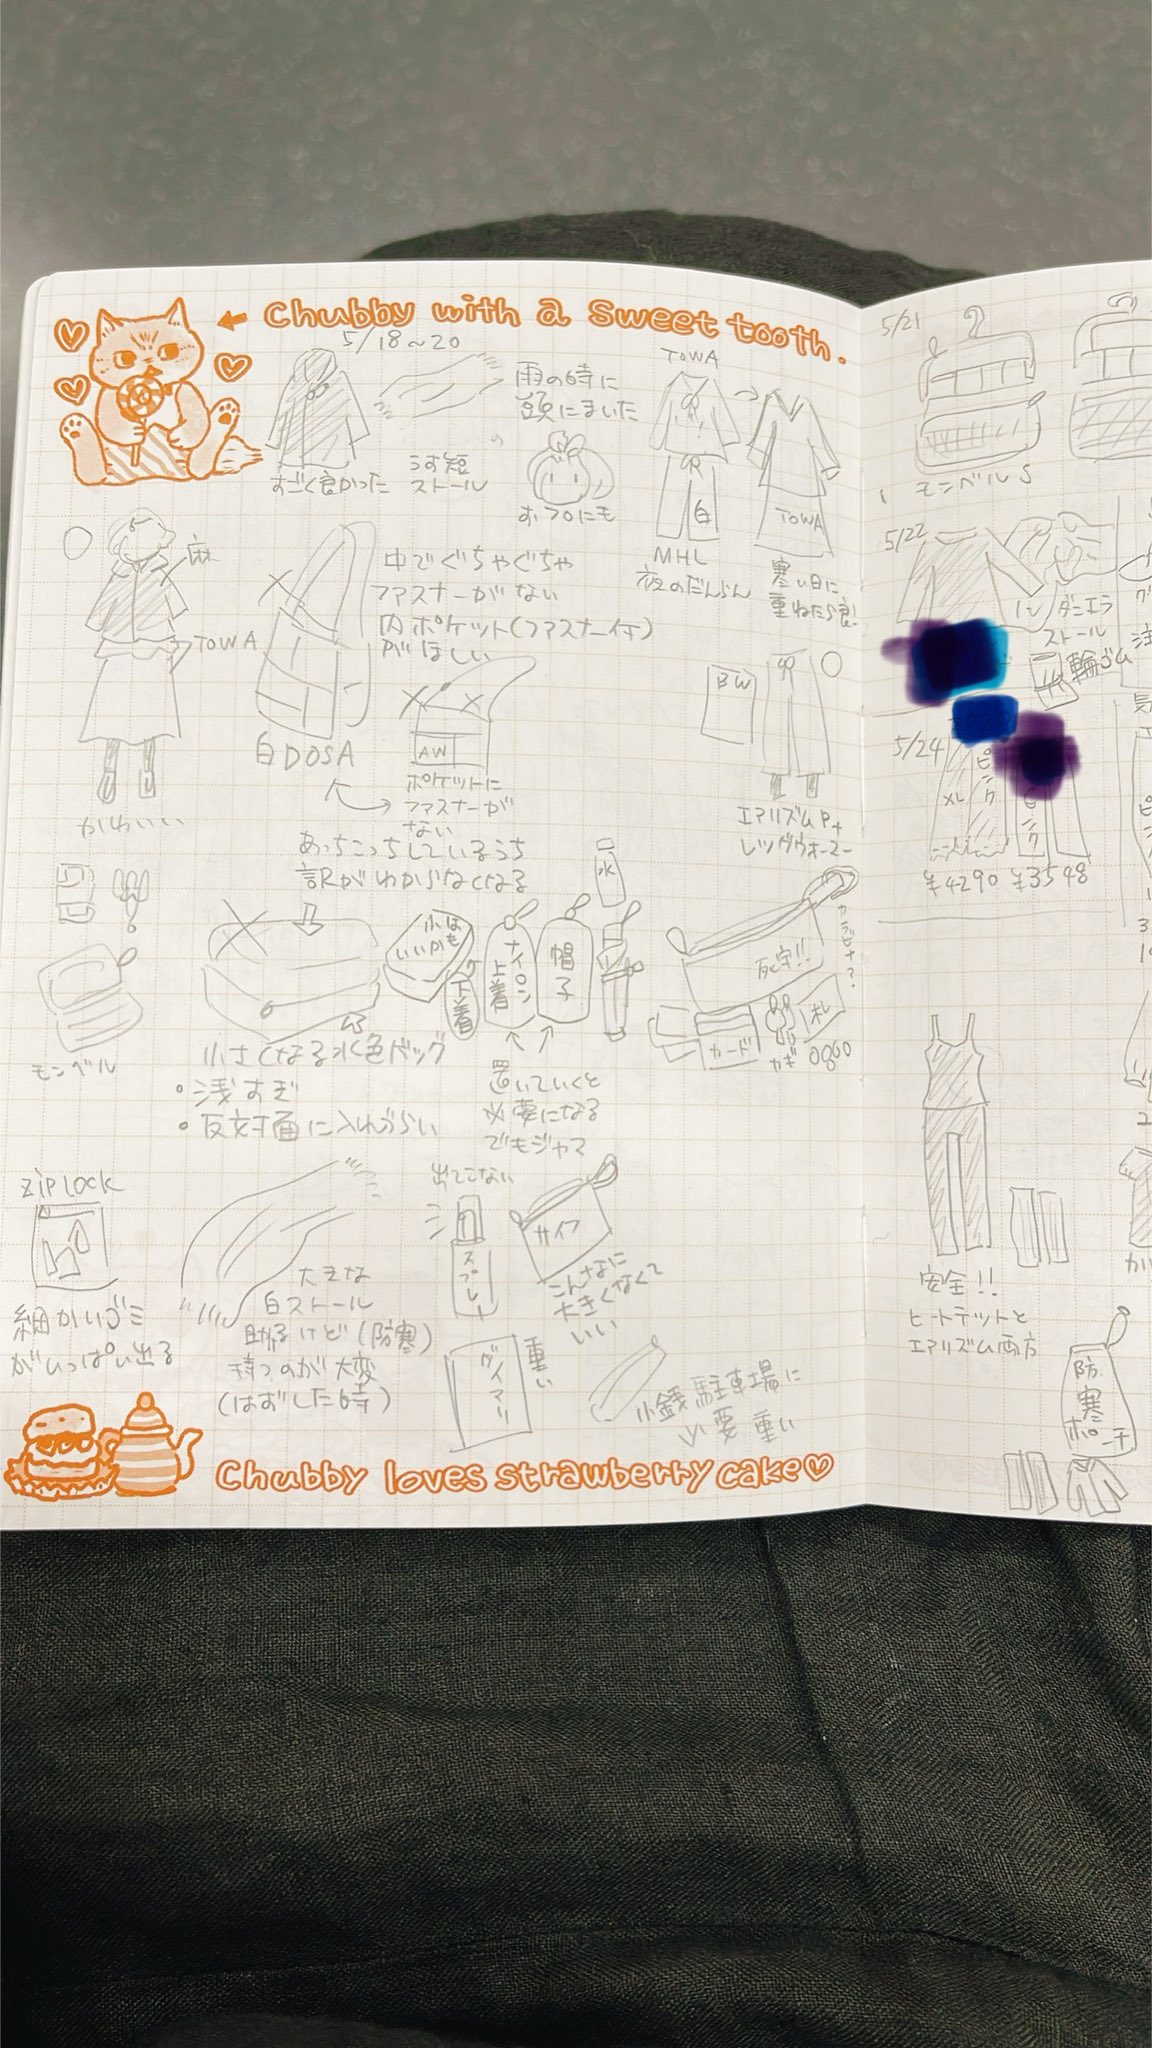 Chubby with a sweet tooth.
5/18~20
すごく良かった
うす短
ストール
雨の時に
頭にまいた
おフロにも
TOWA
白
MHL
夜のだんらん
TOWA
寒い日に
重ねたら良!
麻
TOWA
かわいい
中でぐちゃぐちゃ
ファスナーがない
内ポケット(ファスナー付)
がほしい
白DOSA
AW
ポケットに
ファスナーが
ない
BW
エアリズムP+
レッグウォーマー
あっちこっちしているうち
訳がわからなくなる
モンベル
小さくなる水色バッグ
・浅すぎ
・反対面に入れづらい
下着
ナイロン
上着
帽子
水
置いていくと
必要になる
でもジャマ
カラビナ?
カード
カギ
札
ZIPLOCK
細かいゴミ
がいっぱい出る
大きな
白ストール
助かるけど(防寒)
持つのが大変
(はずした時)
出てこない
スプレー
サイフ
こんなに
大きくなくて
いい
重い
小銭 駐車場に
必要 重い
Chubby loves strawberry cake
5/21
モンベルS
5/22
ダニエラ
ストール
輪ゴム
5/24
XL
ピンク
¥4290 ¥3548
安全!!
ヒートテックと
エアリズム両方
防寒